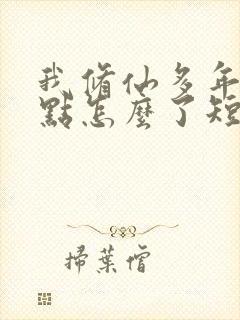 我修仙多年
點怎麼了短
掃葉僧